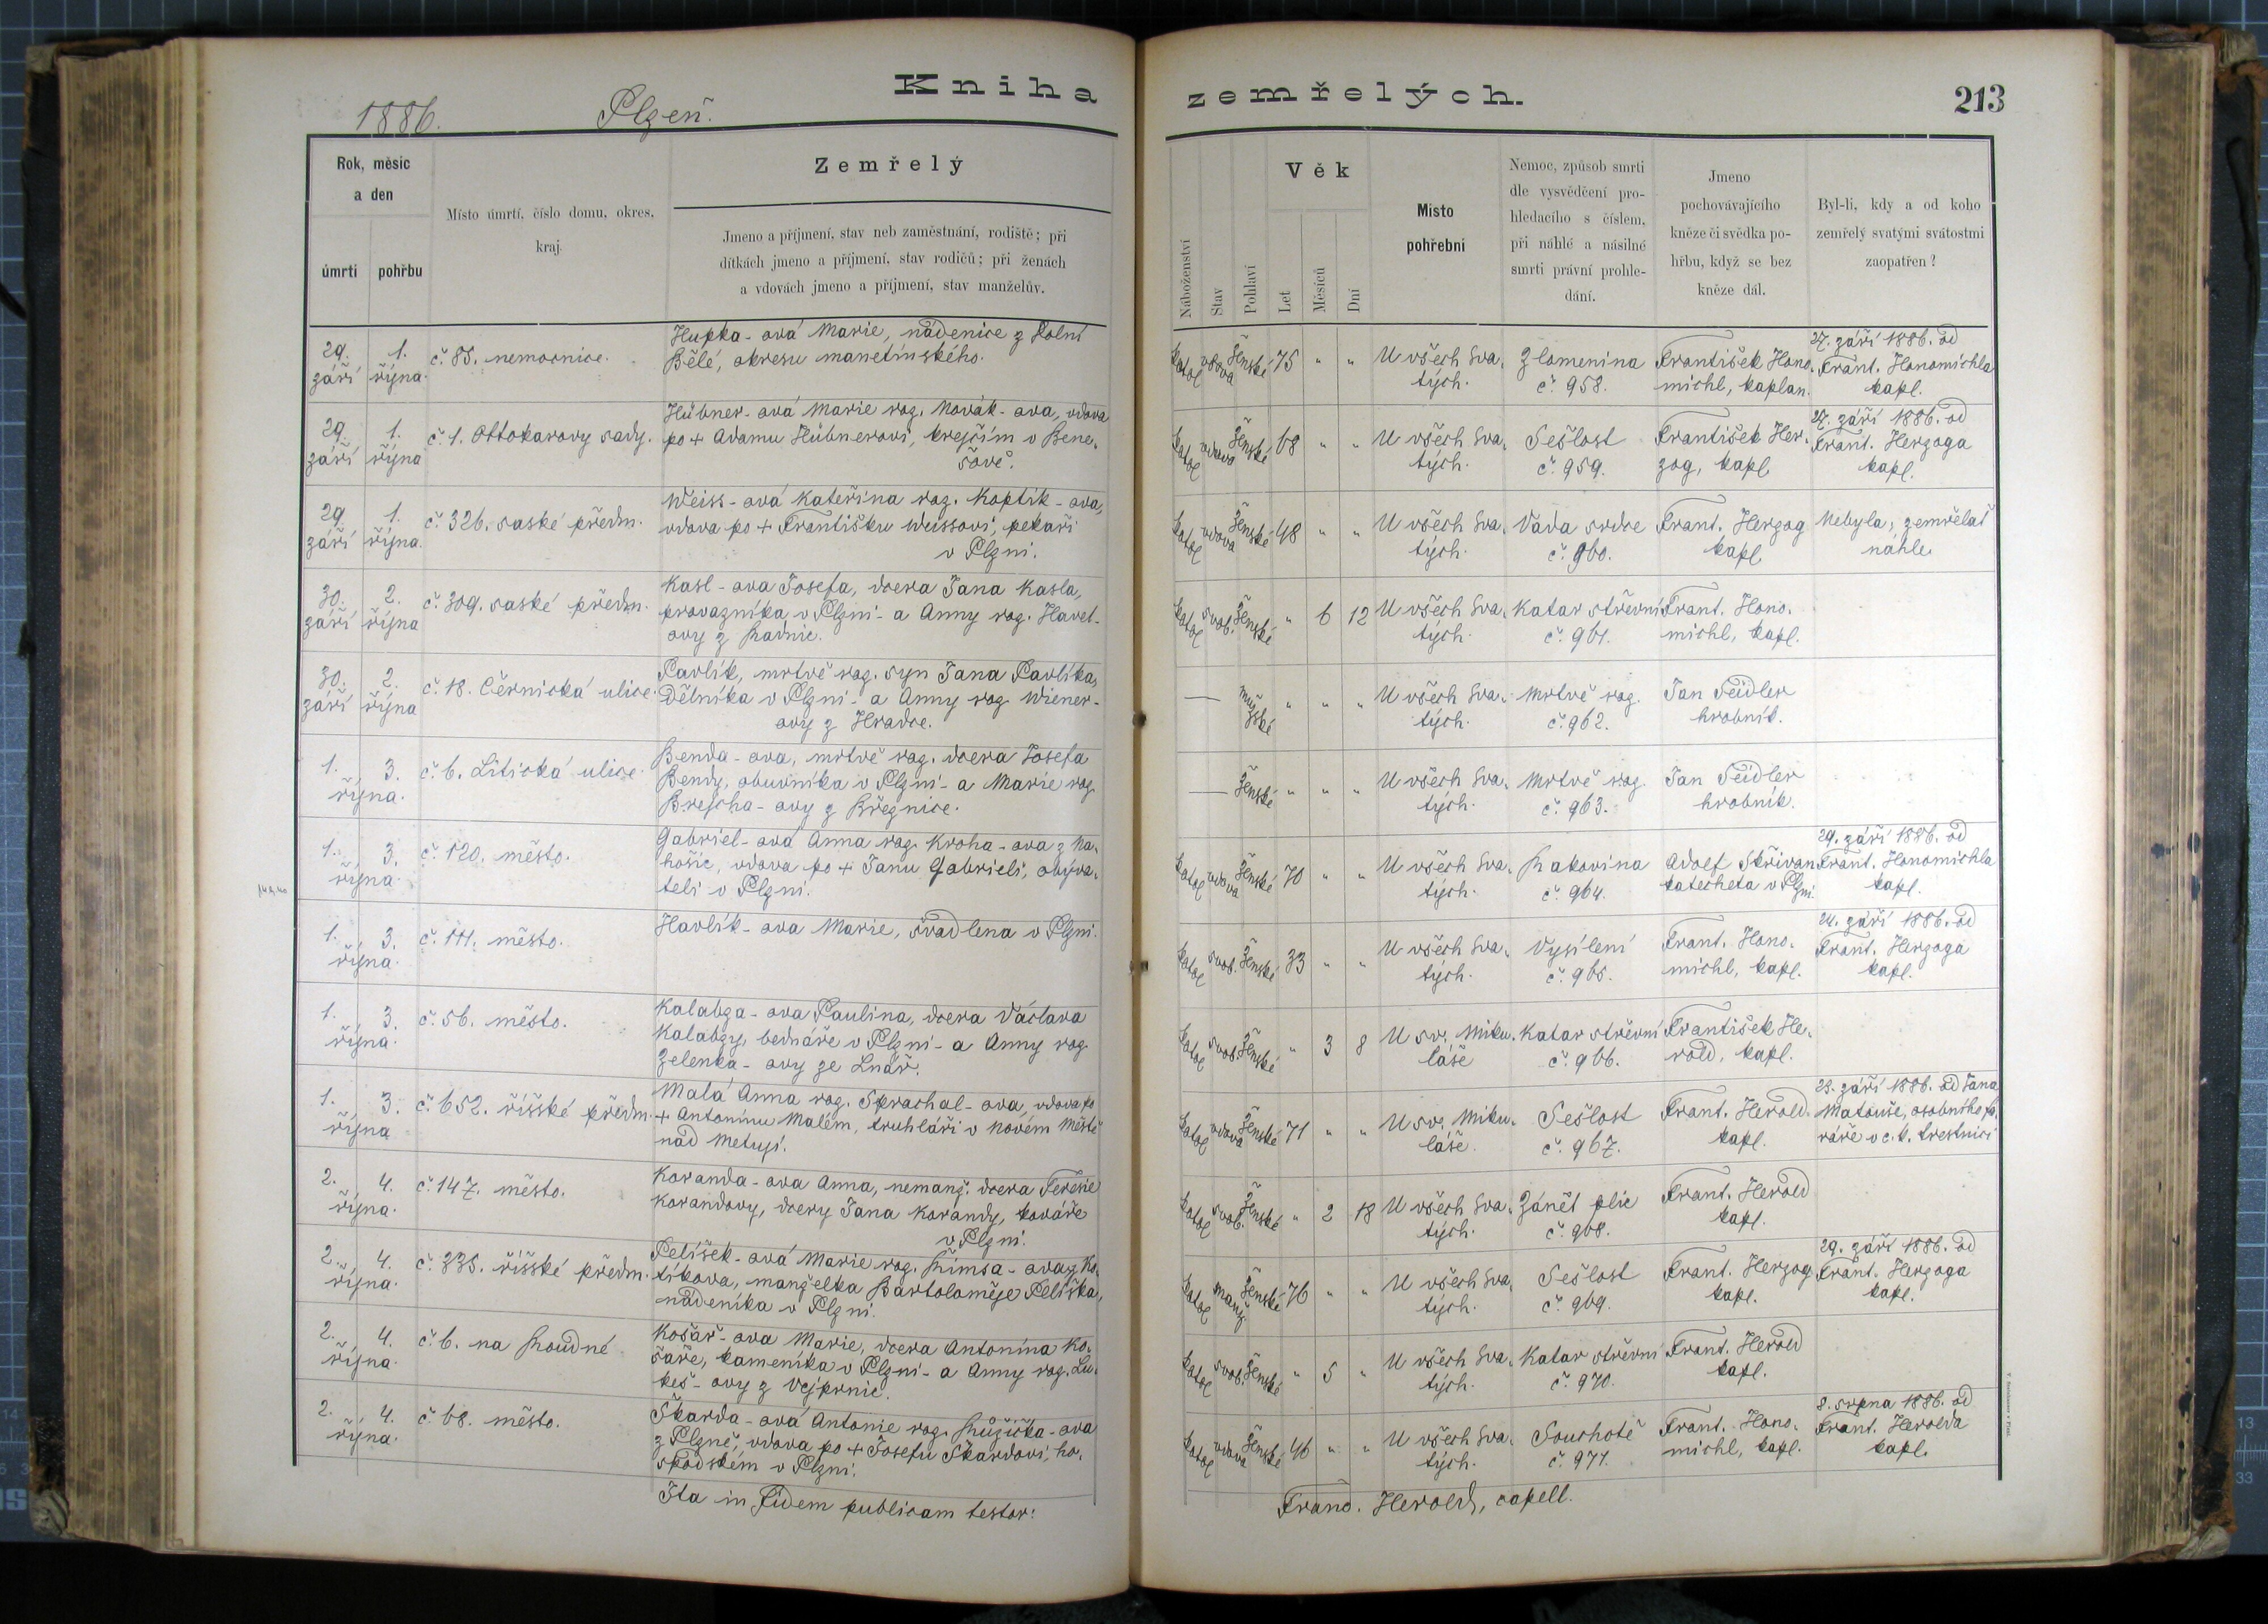 Kniha
1886. Plzeň.
Rok, měsíc
a den
úmrtí
pohřbu
Místo úmrtí, číslo domu, okres,
kraj.
Zemřelý
Jmeno a příjmení, stav neb zaměstnání, rodiště; při
dítkách jmeno a příjmení, stav rodičů; při ženách
a vdovách jmeno a příjmení, stav manželův.
29. září
1. října.
č. 85. nemocnice.
Hupka-ová Marie, nádenice z Dolní
Bělé, okresu manetínského.
29 září
1. října
č. 1. Ottokarovy sady.
Hübner-ová Marie roz. Novák-ova, vdova
po + Adamu Hübnerovi, krejčím v Bene-
šově.
29 září
1. října.
č. 326. saské předm.
Weiss-ová Kateřina roz. Koptik-ova,
vdova po + Františku Weissovi, pekaři
v Plzni.
30. září
2. října
č. 309. saské předm.
Kasl-ova Josefa, dcera Jana Kasla,
provazníka v Plzni - a Anny roz. Havel-
ovy z Radnic.
30. září
2. října
č. 18. Černická ulice.
Pavlík, mrtvě roz. syn Jana Pavlíka,
Dělníka v Plzni - a Anny roz. Wiener-
ovy z Hradce.
1. 3. října.
č. 6. Litická ulice.
Benda-ova, mrtvě roz. dcera Josefa
Bendy, obuvníka v Plzni - a Marie roz.
Brejcha-ovy z Březnice.
1. 3. října.
č. 120. město.
Gabriel-ová Anna roz. Kroha-ova z Na-
hošic, vdova po + Janu Gabrieli, obyva-
teli v Plzni.
1. 3. října.
č. 111. město.
Havlík-ova Marie, švadlena v Plzni.
1. 3. října.
č. 56. město.
Kalabza-ova Paulina, dcera Václava
Kalabzy, bednáře v Plzni - a Anny roz.
Zelenka-ovy ze Lnář.
1. 3. října
č. 652. říšské předm.
Malá Anna roz. Sprachal-ova, vdova po
+ Antonínu Malém, truhláři v Novém Městě
nad Metují.
2. 4. října.
č. 147. město.
Koranda-ova Anna, nemanž. dcera Terezie
Korandovy, dcery Jana Korandy, kováře
v Plzni.
2. 4. října.
č. 335. říšské předm.
Pelíšek-ová Marie roz. Římsa-ova z Ko-
tíkova, manželka Bartoloměje Pelíška,
nádeníka v Plzni.
2. 4. října.
č. 6. na Roudné
Košař-ova Marie, dcera Antonína Ko-
šaře, kameníka v Plzni - a Anny roz. Lu-
keš-ovy z Vejprnic.
2. 4. října.
č 68. město.
Škarda-ová Antonie roz. Růžička-ova
z Plzně, vdova po + Josefu Škardovi, ho-
spodském v Plzni.
Ita in fidem publicam testor:
zemřelých.
213
Náboženství
Stav
Pohlaví
Věk
Let
Měsíců
Dní
Místo
pohřební
Nemoc, způsob smrti
dle vysvědčení pro-
hledacího s číslem,
při náhlé a násilné
smrti právní prohle-
dání.
Jmeno
pochovávajícího
kněze či svědka po-
hřbu, když se bez
kněze dál.
Byl-li, kdy a od koho
zemřelý svatými svátostmi
zaopatřen?
katol vdova ženské 75 " "
U všech Sva-
tých.
Zlomenina
č. 958.
František Hono-
michl, kaplan.
27. září 1886. od
Frant. Honomichla
kapl.
katol vdova ženské 68 " "
U všech Sva-
tých.
Sešlost
č. 959.
František Her-
zog, kapl.
27. září 1886. od
Frant. Herzoga
kapl.
katol vdova ženské 48 " "
U všech Sva-
tých.
Vada srdce
č. 960.
Frant. Herzog
kapl.
Nebyla; zemřelať
náhle.
katol svob. ženské " 6 12
U všech Sva-
tých.
Katar střevní
č. 961.
Frant. Hono-
michl, kapl.
— mužské " " "
U všech Sva-
tých.
Mrtvě roz.
č. 962.
Jan Seidler
hrobník.
— ženské " " "
U všech Sva-
tých.
Mrtvě roz.
č. 963.
Jan Seidler
hrobník.
katol vdova ženské 70 " "
U všech Sva-
tých.
Rakovina
č. 964.
Adolf Skřivan
katecheta v Plzni.
29. září 1886. od
Frant. Honomichla
kapl.
katol svob. ženské 33 " "
U všech Sva-
tých.
Vysílení
č. 965.
Frant. Hono-
michl, kapl.
24. září 1886. od
Frant. Herzoga
kapl.
katol svob. ženské " 3 8
U sv. Miku-
láše
Katar střevní
č. 966.
František He-
rold, kapl.
katol vdova ženské 71 " "
U sv. Miku-
láše.
Sešlost
č. 967.
Frant. Herold.
kapl.
23. září 1886. od Jana
Matouše, osobního fa-
ráře v c. k. trestnici
katol svob. ženské " 2 18
U všech Sva-
tých.
Zánět plic
č. 968.
Frant. Herold
kapl.
katol manž. ženské 76 " "
U všech Sva-
tých.
Sešlost
č. 969.
Frant. Herzog
kapl.
29. září 1886. od
Frant. Herzoga
kapl.
katol svob. ženské " 5 "
U všech Sva-
tých.
Katar střevní
č. 970.
Frant. Herold
kapl.
katol vdova ženské 46 " "
U všech Sva-
tých.
Souchotě
č. 971.
Frant. Hono-
michl, kapl.
8. srpna 1886. od
Frant. Herolda
kapl.
Franc. Herold, capell.